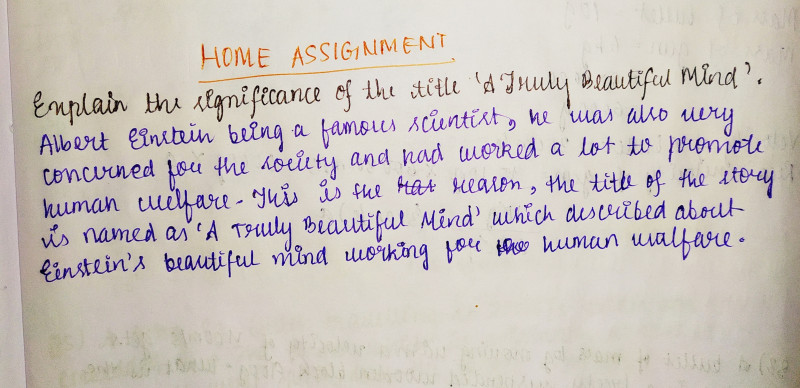 HOME ASSIGNMENT
Explain the significance of the title 'A Truly Beautiful Mind'.
Albert Einstein being a famous scientist, he was also very
concerned for the society and had worked a lot to promote
human welfare. This is the reason, the title of the story
is named as 'A Truly Beautiful Mind' which described about
Einstein's beautiful mind working for human walfare.